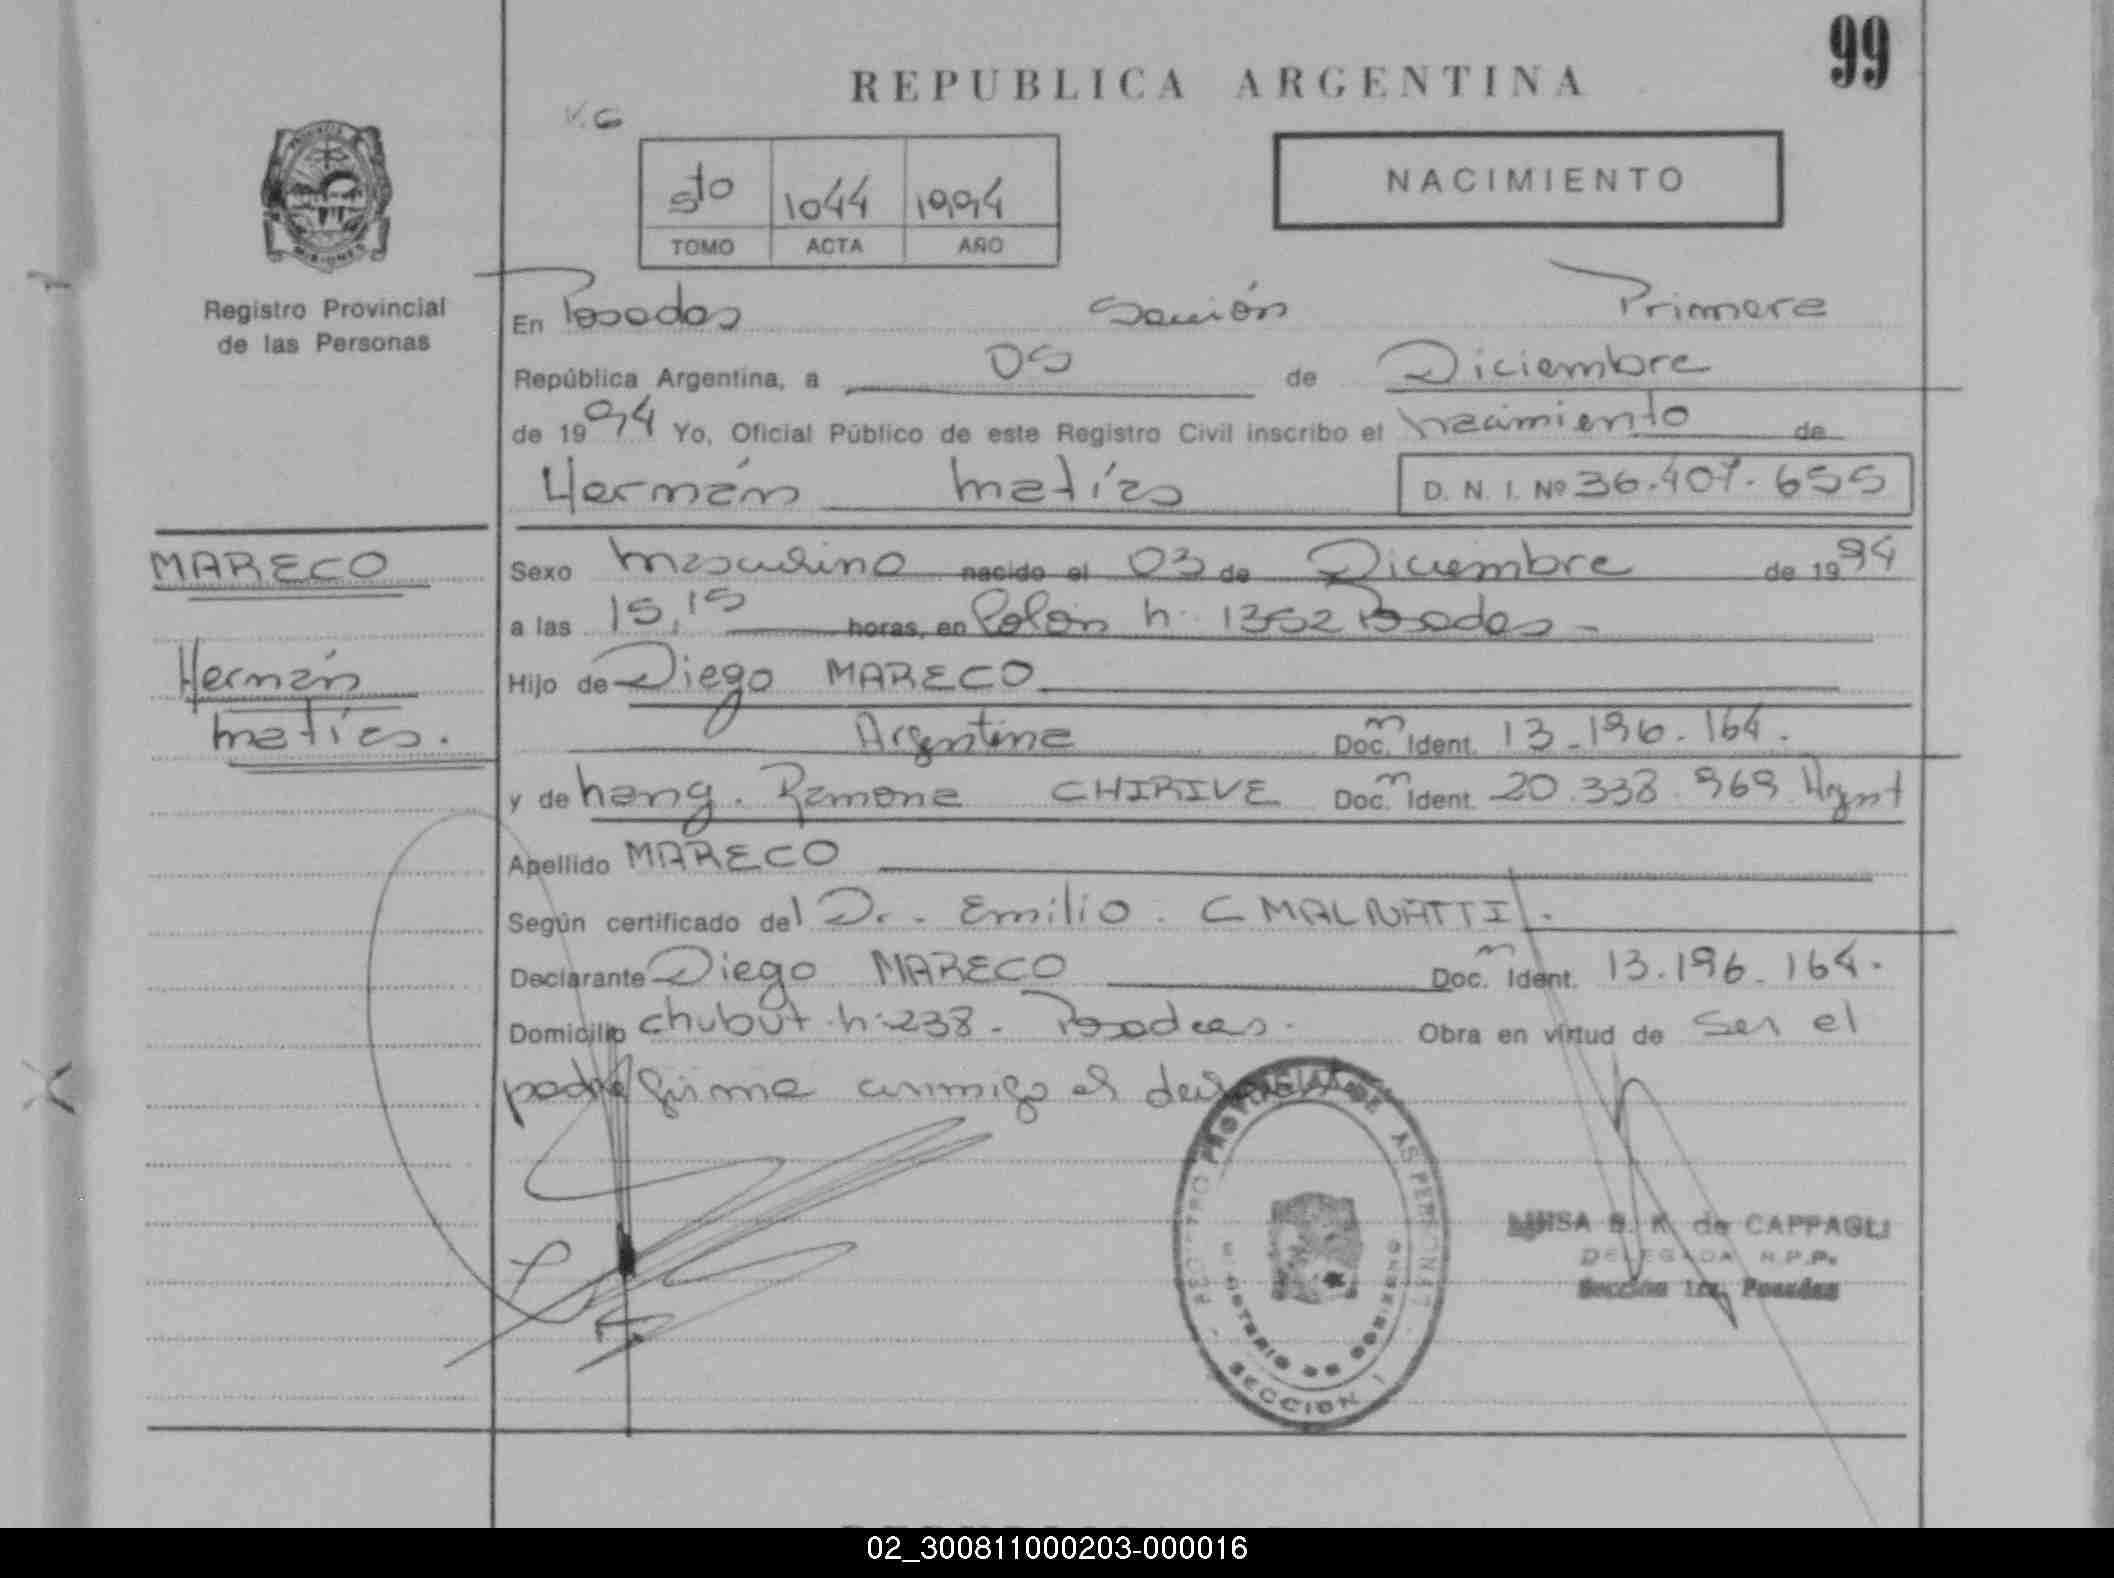 99
REPUBLICA ARGENTINA
5to 1044 1994
TOMO ACTA AÑO
NACIMIENTO
MISIONES
Registro Provincial
de las Personas
En Posadas Sección Primera
República Argentina, a 05 de Diciembre
de 1994 Yo, Oficial Público de este Registro Civil inscribo el nacimiento de
Hernán Matías D. N. I. Nº 36.407.655
MARECO
Hernán
Matías.
Sexo Masculino nacido el 03 de Diciembre de 1994
a las 15,15 horas, en Colón n. 1352 Posadas -
Hijo de Diego MARECO
Argentina Doc. Ident. 13.196.164.
y de Marg. Ramona CHIRIVE Doc. Ident. 20.338.969 Argent
Apellido MARECO
Según certificado del Dr. Emilio. C MALNATTI.
Declarante Diego MARECO Doc. Ident. 13.196.164.
Domicilio Chubut n: 238 - Posadas. Obra en virtud de Ser el
padre firma conmigo el
REGISTRO PROVINCIAL DE LAS PERSONAS
MINISTERIO DE GOBIERNO
SECCION 1
LUISA B. K. de CAPPAGLI
DELEGADA R.P.P.
Sección 1ra. Posadas
02_300811000203-000016